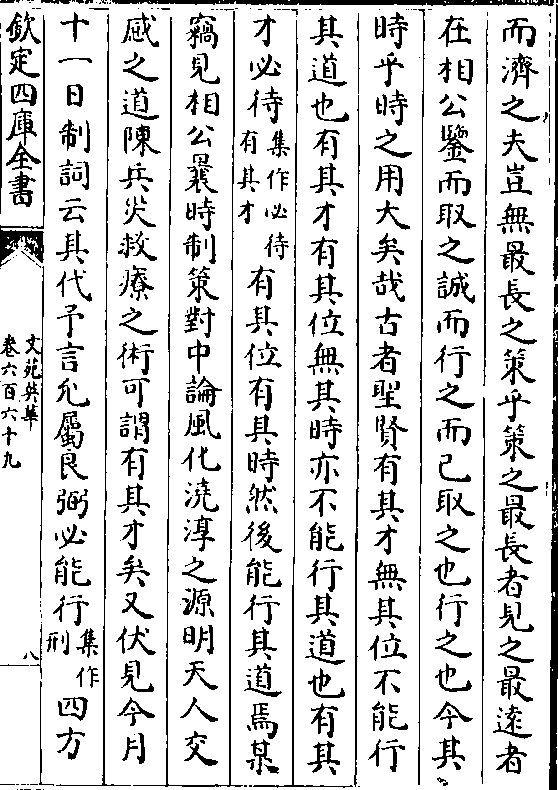 而濟之夫豈無最長之策乎策之最長者見之最遠者
在相公鑒而取之誠而行之而已取之也行之也今其
時乎時之用大矣哉古者聖賢有其才無其位不能行
其道也有其才有其位無其時亦不能行其道也有其
才必待集作必待有其才有其位有其時然後能行其道焉某
竊見相公曩時制策對中論風化澆淳之源明天人交
感之道陳兵災救療之術可謂有其才矣又伏見今月
十一日制詞云其代予言允屬良弼必能行集作刑四方
欽定四庫全書
文苑英華
卷六百六十九
八